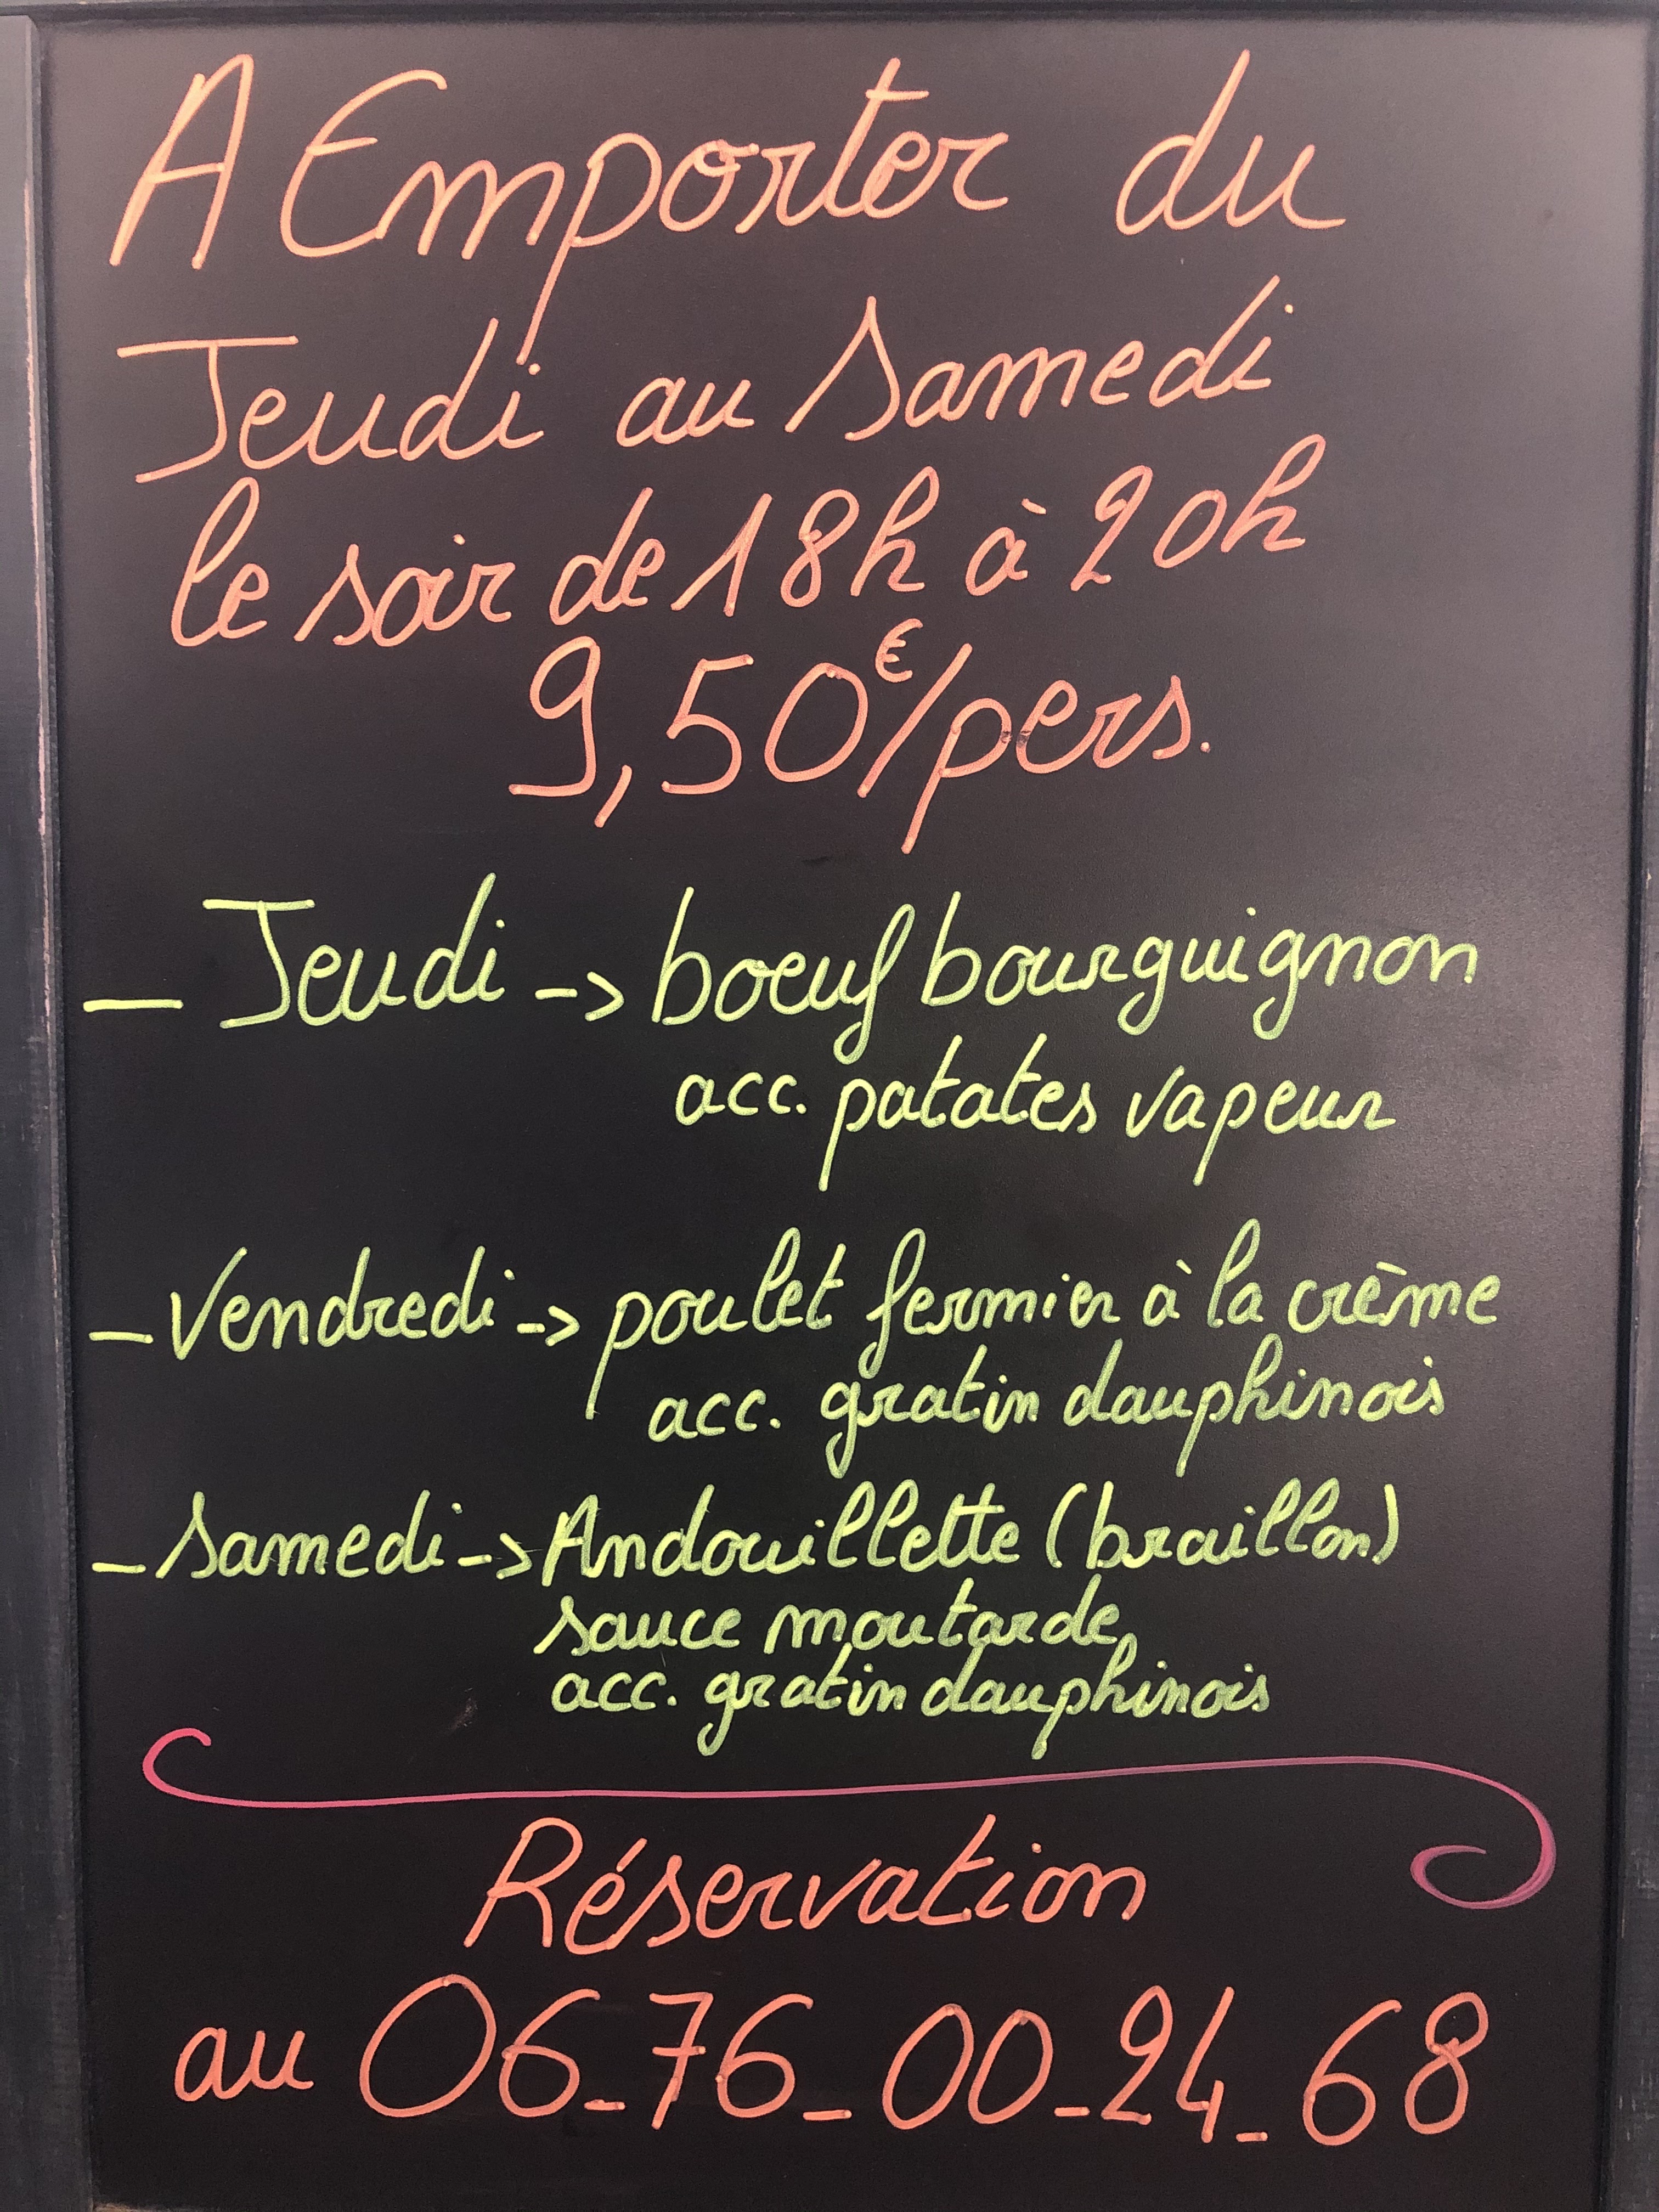 A Emporter du
Jeudi au Samedi
le soir de 18h à 20h
9,50€/pers.
- Jeudi -> boeuf bourguignon
acc. patates vapeur
- Vendredi -> poulet fermier à la crème
acc. gratin dauphinois
- Samedi -> Andouillette (braillon)
sauce moutarde
acc. gratin dauphinois
Réservation
au 06_76_00_24_68